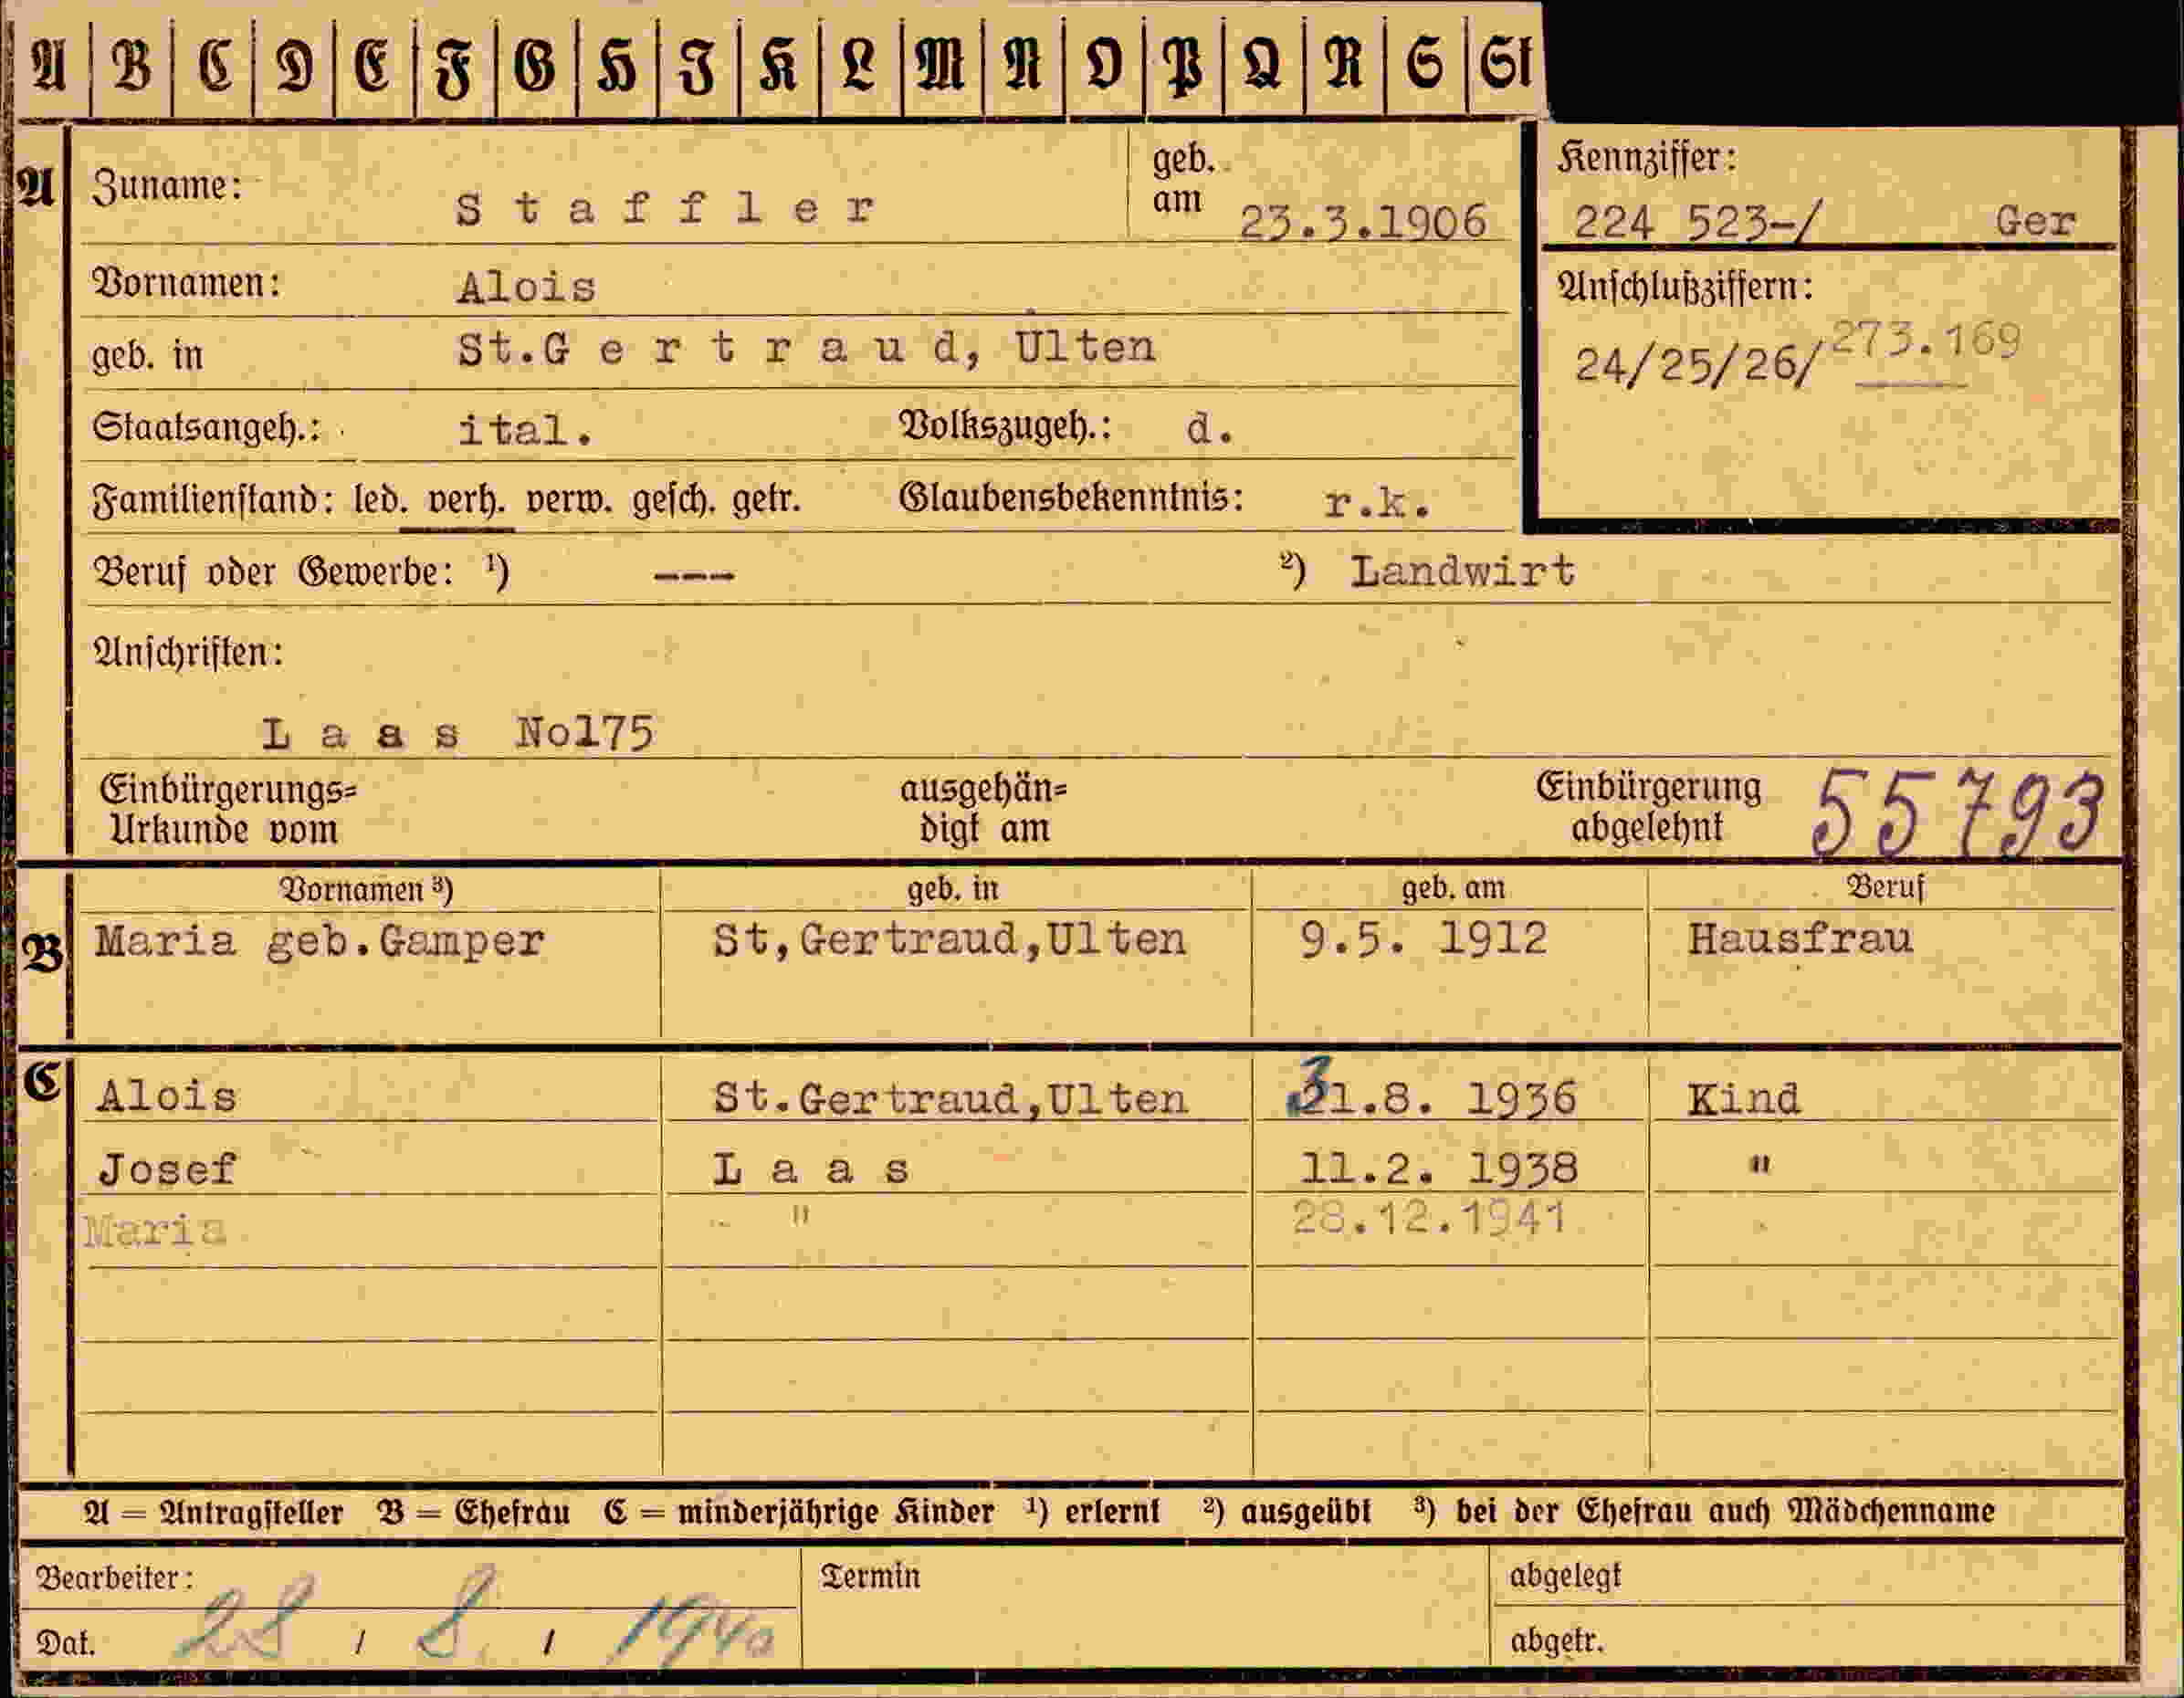 A B C D E F G H I K L M N O P Q R S St
A Zuname: Staffler geb. am 23.3.1906
Kennziffer:
224 523-/ Ger
Vornamen: Alois
Anschlußziffern:
24/25/26/273.169
geb. in St.Gertraud, Ulten
Staatsangeh.: ital. Volkszugeh.: d.
Familienstand: led. verh. verw. gesch. getr. Glaubensbekenntnis: r.k.
Beruf oder Gewerbe: ¹) --- ²) Landwirt
Anschriften:
Laas No175
Einbürgerungs= ausgehän= Einbürgerung 55793
Urkunde vom digt am abgelehnt
Vornamen ³) geb. in geb. am Beruf
B Maria geb.Gamper St,Gertraud,Ulten 9.5. 1912 Hausfrau
C Alois St.Gertraud,Ulten 31.8. 1936 Kind
Josef Laas 11.2. 1938 "
Maria " 28.12.1941
A = Antragsteller B = Ehefrau C = minderjährige Kinder ¹) erlernt ²) ausgeübt ³) bei der Ehefrau auch Mädchenname
Bearbeiter: Termin abgelegt
Dat. 28 / 8. / 1940 abgetr.